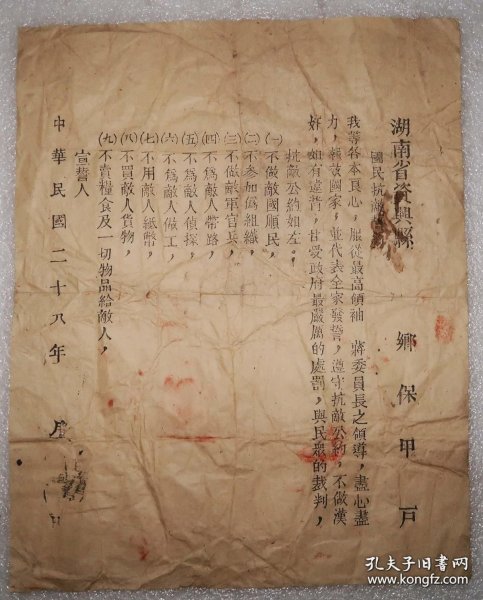 湖南省資興縣　鄉　保　甲　戶
國民抗敵
我等各本良心，服從最高領袖　蔣委員長之領導，盡心盡
力，報効國家，並代表全家發誓，遵守抗敵公約，不做漢
奸，如有違背，甘受政府最嚴厲的處罰，與民眾的裁判，
抗敵公約如左。
㈠不做敵國順民，
㈡不參加僞組織，
㈢不做敵軍官兵，
㈣不爲敵人帶路，
㈤不爲敵人偵探，
㈥不爲敵人做工，
㈦不用敵人紙幣，
㈧不買敵人貨物，
㈨不賣糧食及一切物品給敵人，
宣誓人
中華民國二十八年　月　日
孔夫子旧书网
www.kongfz.com